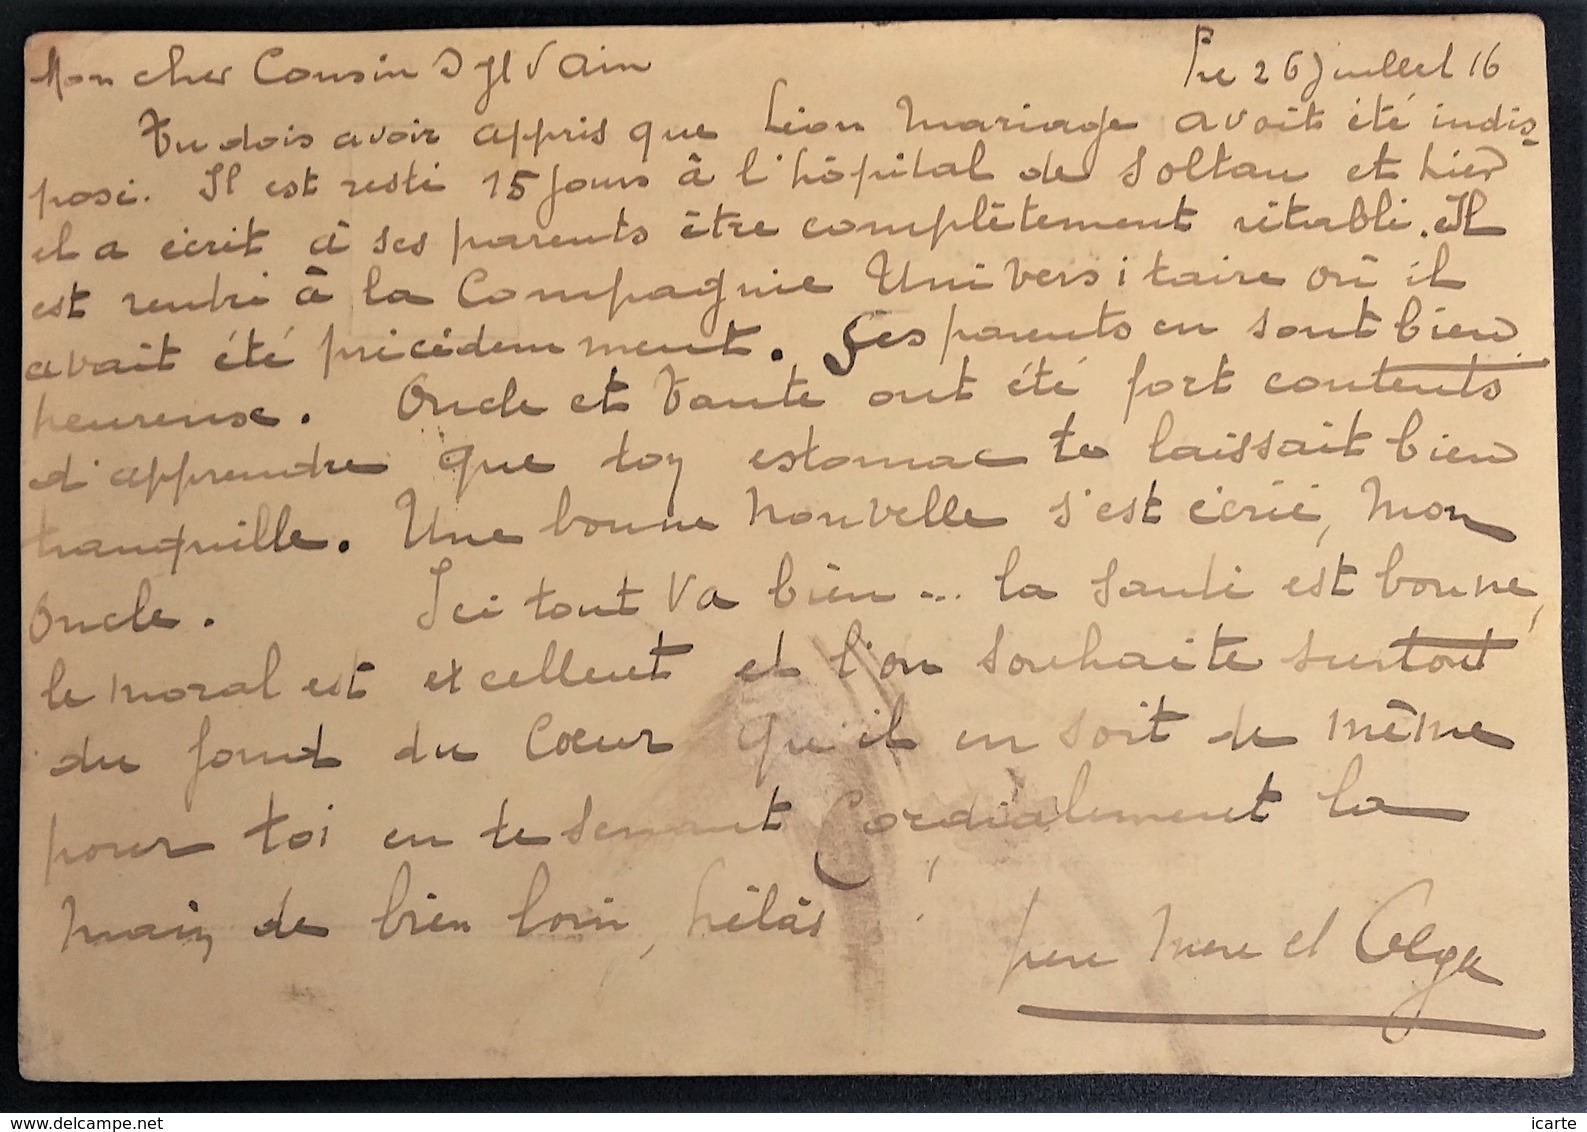 Mon cher Cousin Sylvain
26 juillet 16
Tu dois avoir appris que Léon Mariage avait été indis-
posé. Il est resté 15 jours à l'hôpital de Soltau et hier
il a écrit à ses parents être complètement rétabli. Il
est rentré à la Compagnie Universitaire où il
avait été précédemment. Ses parents en sont bien
heureux. Oncle et Tante ont été fort contents
d'apprendre que ton estomac te laissait bien
tranquille. Une bonne nouvelle s'est écrié, mon
Oncle. Ici tout va bien... la santé est bonne,
le moral est excellent et l'on souhaite surtout
du fond du Cœur qu'il en soit de même
pour toi en te serrant Cordialement la
main de bien loin, hélàs !
père mere et Olga
www.delcampe.net
icarte